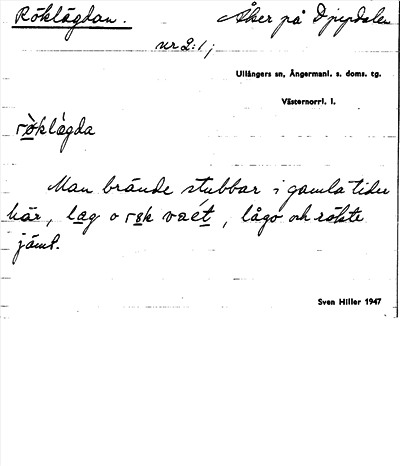 Röklägdan. Åker på Djupdalen
nr 2:1;
Ullångers sn, Ångermanl. s. doms. tg.
Västernorrl. l.
rö̀klǻgda
Man brände stubbar i gamla tider
här, lag o røk vaét, lågo och rökte
jämt.
Sven Hiller 1947